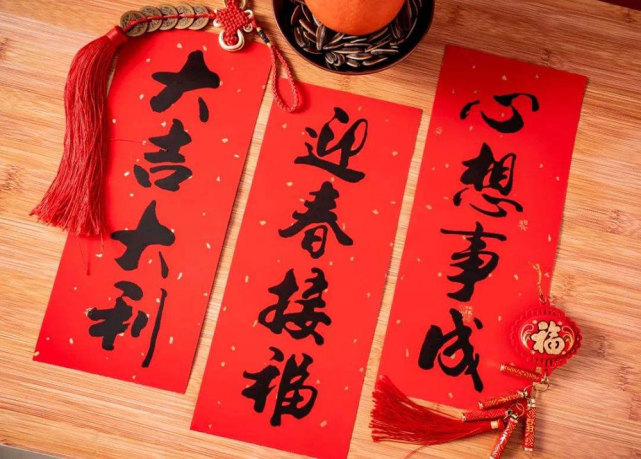 心想事成
迎春接福
大吉大利
福